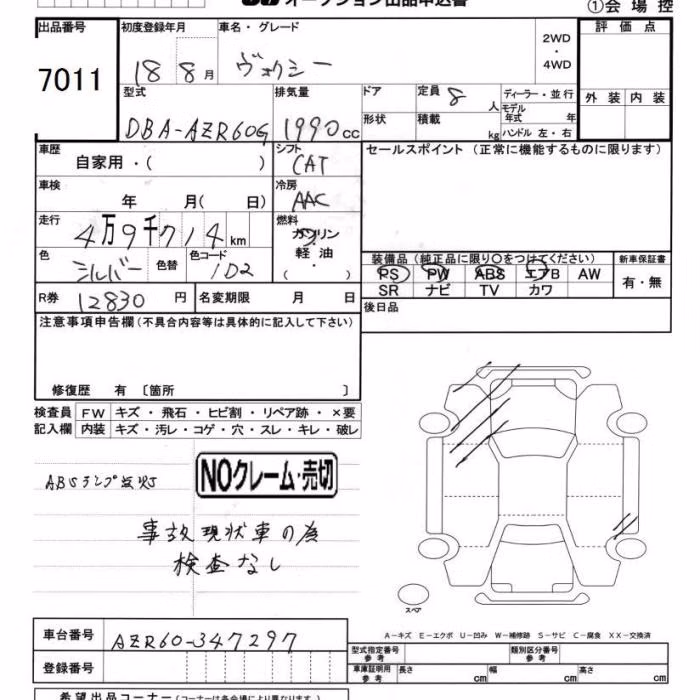 オークション出品申込書
①会場控
出品番号 初度登録年月 車名・グレード 2WD ・ 4WD 評価点
7011 18 8月 ヴォクシー
型式 排気量 ドア 定員 8 人 ディーラー・並行 外装 内装
DBA-AZR60G 1990 cc 形状 積載 kg モデル年式 年
ハンドル 左・右
車歴 自家用・( ) シフト CAT セールスポイント (正常に機能するものに限ります)
車検 年 月( 日) 冷房 AAC
走行 4万9千714 km 燃料 ガソリン 軽油 ( ・ )
色 シルバー 色替 色コード 1D2
装備品 (純正品に限り〇をつけてください) 新車保証書
PS PW ABS エアB AW 有・無
SR ナビ TV カワ
R券 12830 円 名変期限 月 日 後日品
注意事項申告欄 (不具合内容等は具体的に記入して下さい)
修復歴 有 〔箇所 〕
検査員 FW キズ・飛石・ヒビ割・リペア跡・×要
記入欄 内装 キズ・汚レ・コゲ・穴・スレ・キレ・破レ
ABSランプ点灯
NOクレーム・売切
事故現状車の為
検査なし
スペア
A-キズ E-エクボ U-凹み W-補修跡 S-サビ C-腐食 XX-交換済
車台番号 AZR60-347297
型式指定番号 参考 類別区分番号 参考
登録番号
車庫証明用 参考 長さ cm 幅 cm 高さ cm
希望出品コーナー (コーナーは各会場により異なります。)